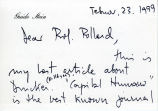 Guido Stein
Febru. 23. 1999
Dear Prof. Pollard,
this is
my last article about
Drucker. "Capital Humano"
is the best known journal